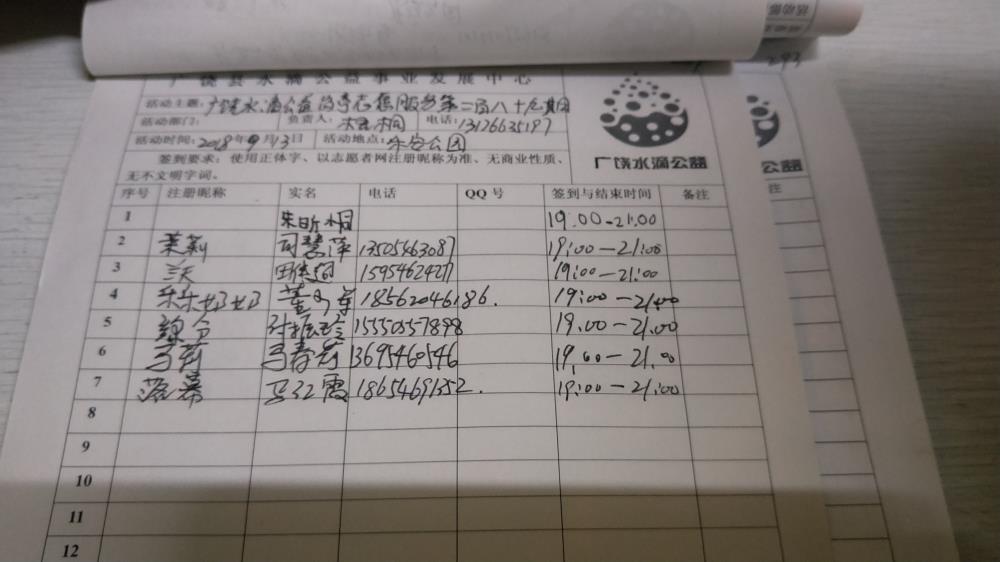 293
广饶县水滴公益事业发展中心
活动主题：广饶水滴公益
活动部门： 负责人： 桐 电话：13126635197
活动时间：2018年9月13日 活动地点：乐安公园
广饶水滴公益
签到要求：使用正体字、以志愿者网注册昵称为准、无商业性质、
无不文明字词。
序号 注册昵称 实名 电话 QQ号 签到与结束时间 备注
1 朱昕桐 19.00-21.00
2 茉莉 司慧萍 13505463087 19:00-21:00
3 19:00-21:00
4 乐乐妈妈 18562046186. 19:00-21:00
5 15550557898 19.00-21.00
6 马春芳 13695460546 19.00-21.00
7 落幕 马红霞 18654691352. 19:00-21:00
8
9
10
11
12
公益
注